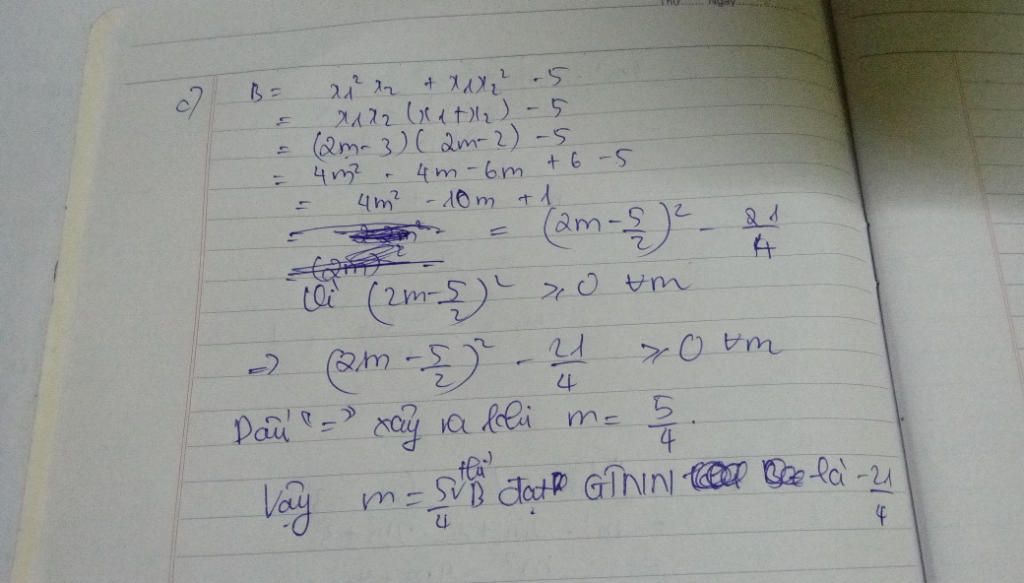 Thứ Ngày
c) B = x1² x2 + x1x2² - 5
= x1x2 (x1+x2) - 5
= (2m-3)(2m-2) - 5
= 4m² - 4m - 6m + 6 - 5
= 4m² - 10m + 1
= = (2m - 5/2)² - 21/4
=
Vì (2m - 5/2)² ⩾ 0 ∀m
=> (2m - 5/2)² - 21/4 ⩾ 0 ∀m
Dấu "=" xảy ra khi m = 5/4.
Vậy m = 5/4 thì B đạt GTNN là -21/4